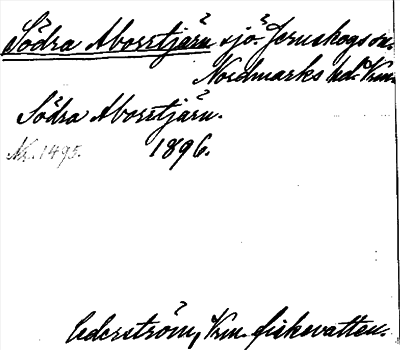 Södra Aborrtjärn sjö. Järnskogs sn.
Nordmarks hd. Vrm.
Södra Aborrtjärn.
Nr. 1495. 1896.
Cederström, Vrm. fiskevatten.